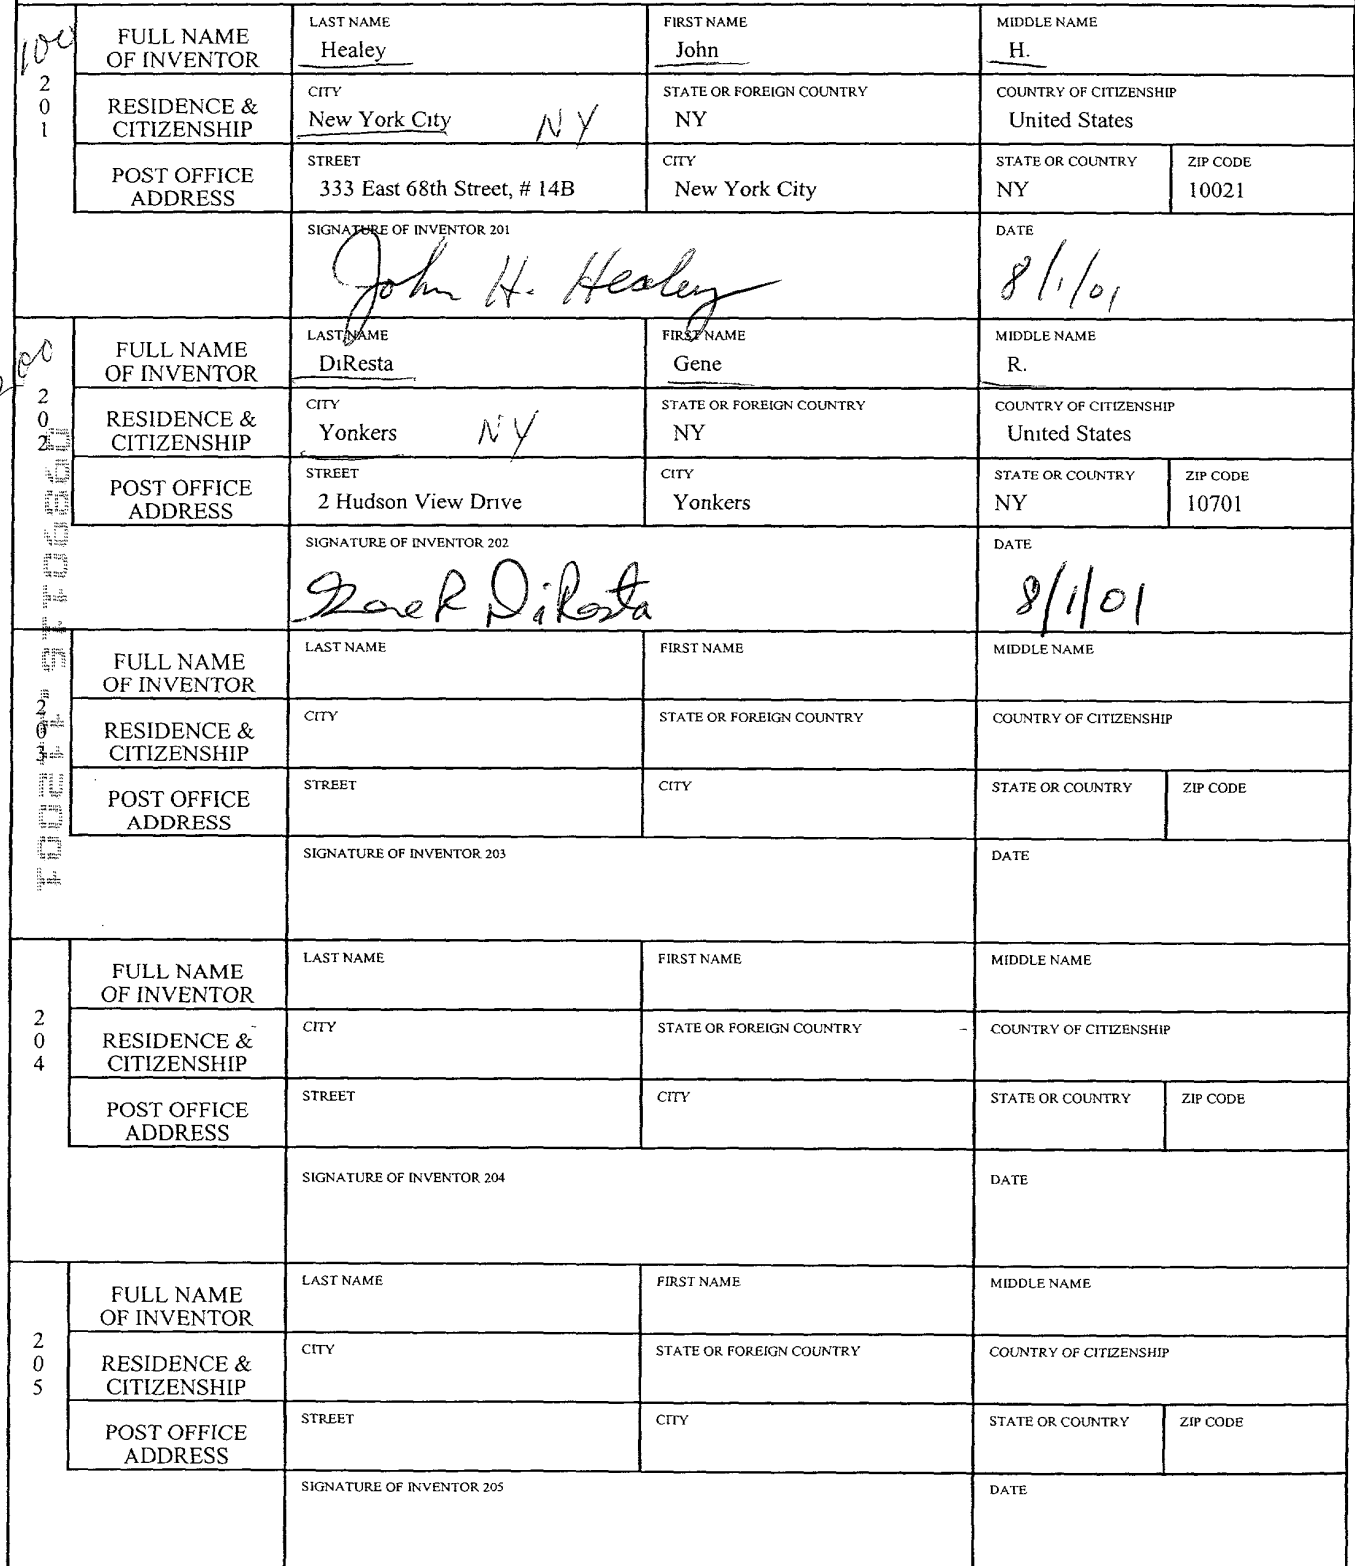 100
201
FULL NAME OF INVENTOR
LAST NAME
Healey
FIRST NAME
John
MIDDLE NAME
H.
RESIDENCE & CITIZENSHIP
CITY
New York City NY
STATE OR FOREIGN COUNTRY
NY
COUNTRY OF CITIZENSHIP
United States
POST OFFICE ADDRESS
STREET
333 East 68th Street, # 14B
CITY
New York City
STATE OR COUNTRY
NY
ZIP CODE
10021
SIGNATURE OF INVENTOR 201
John H. Healey
DATE
8/1/01
200
202
FULL NAME OF INVENTOR
LAST NAME
DiResta
FIRST NAME
Gene
MIDDLE NAME
R.
RESIDENCE & CITIZENSHIP
CITY
Yonkers NY
STATE OR FOREIGN COUNTRY
NY
COUNTRY OF CITIZENSHIP
United States
POST OFFICE ADDRESS
STREET
2 Hudson View Drive
CITY
Yonkers
STATE OR COUNTRY
NY
ZIP CODE
10701
SIGNATURE OF INVENTOR 202
Gene R DiResta
DATE
8/1/01
203
FULL NAME OF INVENTOR
LAST NAME
FIRST NAME
MIDDLE NAME
RESIDENCE & CITIZENSHIP
CITY
STATE OR FOREIGN COUNTRY
COUNTRY OF CITIZENSHIP
POST OFFICE ADDRESS
STREET
CITY
STATE OR COUNTRY
ZIP CODE
SIGNATURE OF INVENTOR 203
DATE
204
FULL NAME OF INVENTOR
LAST NAME
FIRST NAME
MIDDLE NAME
RESIDENCE & CITIZENSHIP
CITY
STATE OR FOREIGN COUNTRY
COUNTRY OF CITIZENSHIP
POST OFFICE ADDRESS
STREET
CITY
STATE OR COUNTRY
ZIP CODE
SIGNATURE OF INVENTOR 204
DATE
205
FULL NAME OF INVENTOR
LAST NAME
FIRST NAME
MIDDLE NAME
RESIDENCE & CITIZENSHIP
CITY
STATE OR FOREIGN COUNTRY
COUNTRY OF CITIZENSHIP
POST OFFICE ADDRESS
STREET
CITY
STATE OR COUNTRY
ZIP CODE
SIGNATURE OF INVENTOR 205
DATE